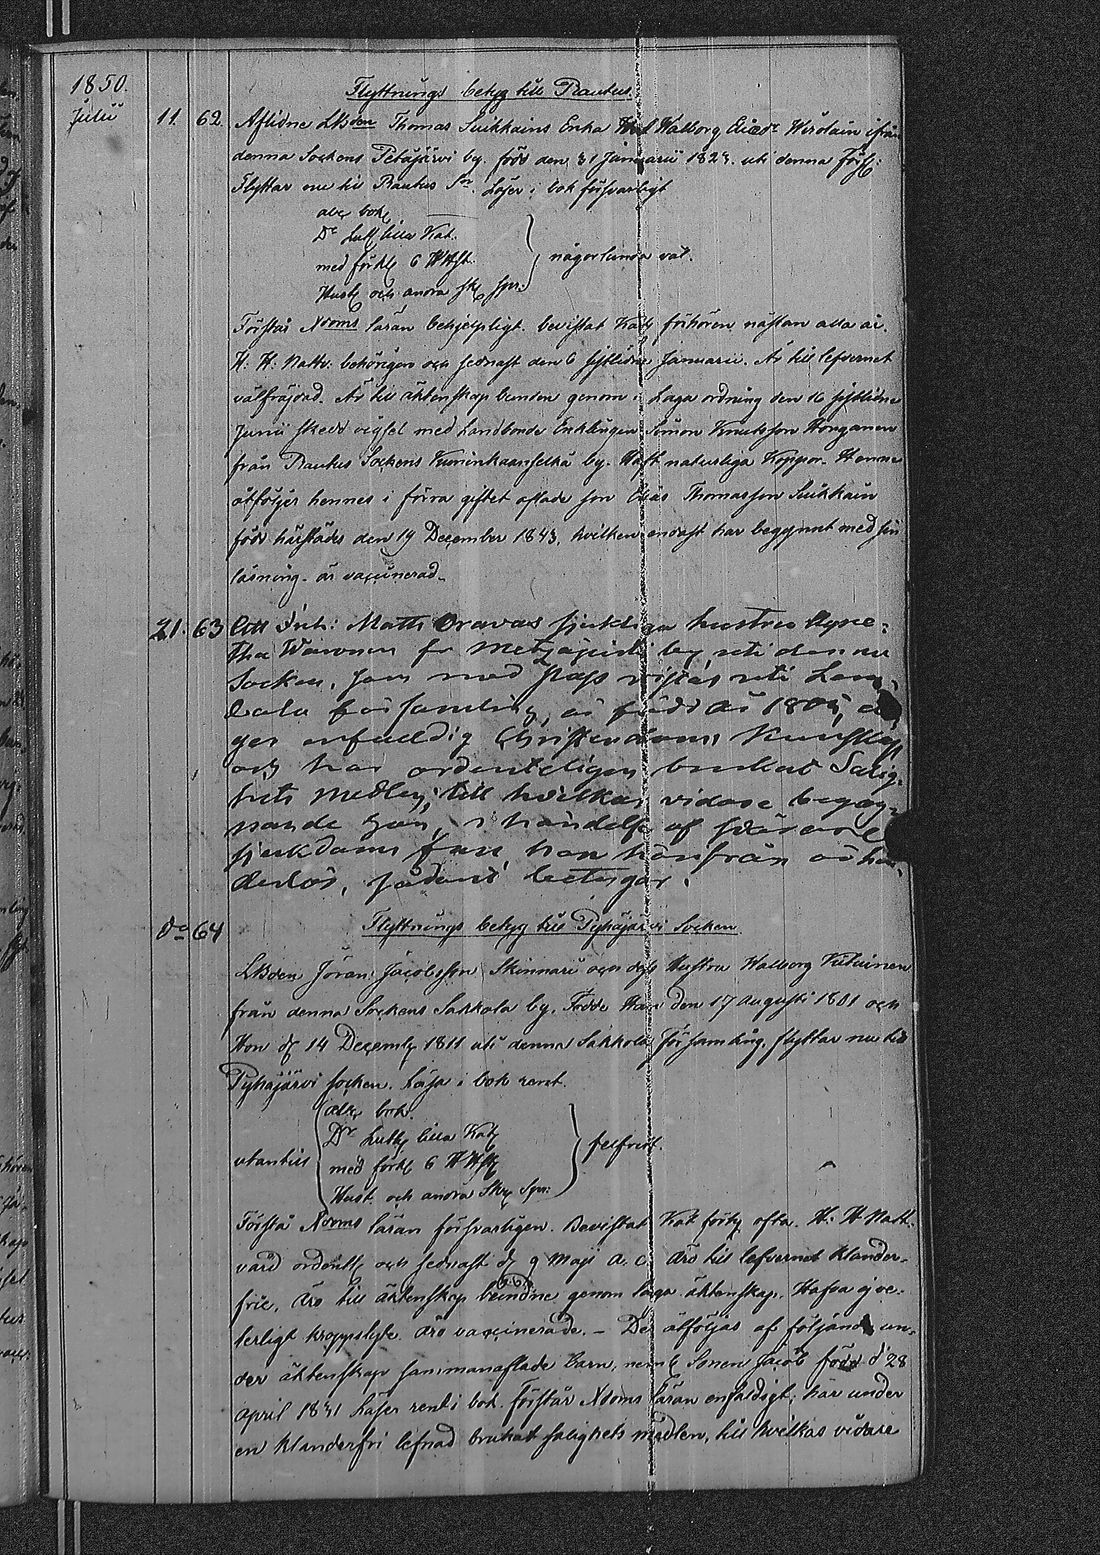 1850.
Julii
Flyttnings betyg till Rautus
11. 62 Aflidne LBden Thomas Suikkains Enka Walborg Eliædr Wirolain ifrån
denna Sockens Petäjärvi by. född den 31 Januarii 1823. uti denna Förs:
Flyttar nu till Rautus Sn. Läser i bok försvarligt
abc bok
Dr Luth lilla Kat.
med förkl 6 HHst.
Hust och andra sk spr.
någorlunda väl.
Förstår Xdoms läran behjelpligt. bevistat Kat förhören nästan alla år.
H. H. Nattv. behörigen och sednast den 6 sistlidne Januarii. Är till lefvernet
välfräjdad. Är till äktenskap bunden genom i Laga ordning den 16 sistlidne
Junii skedd vigsel med Landbonde Enklingen Simon Knutsson Honganen
från Rautus Sockens Kuninkaanselkä by. Haft naturliga Koppor. Henne
åtföljer hennes i förra giftet aflade son Elias Thomasson Suikkain
född härstädes den 19 December 1843, hvilken endast har begynnt med sin
läsning. är vaccinerad.
21. 63 Att Inh: Matts Oravas sjukliga hustru Agne:
tha Waronen fr by uti denna
Socken, som med pass vistas uti Lem
bala församling, är född år 1805, ä
ger enfaldig Christendoms Kunskap
och har ordenteligen brukat Salig-
hets Medlen, till hvilkas vidare begag-
nande hon, i händelse af svårare
sjukdoms fall, hon härifrån är hin
derlös, sådant betygar.
do 64 Flyttnings betyg till Pyhäjärvi Socken
LBden Jöran Jacobsson Skinnari och dess Hustru Walborg Kutuinen
från denna Sockens Sakkola by. Födde Han den 17 Augusti 1801 och
Hon d 14 Decemb 1811 uti denna Sakkola församling, flyttar nu till
Pyhäjärvi socken. Läsa i bok rent.
utantill
abc bok.
Dr Luth lilla Kat
med förkl 6 HHst
Hust. och andra Skr Spr:
felfritt.
Förstå Xdoms läran försvarligen. Bevistat Kat förh ofta. H. H. Natt-
vard ordentl och sednast d 9 Maji a. c. Äro till lefvernet klander-
frie, äro till äktenskap bundne genom laga äktenskap. Hafva ej ve-
terligt kroppslyte. äro vaccinerade. – De åtföljas af följande un-
der äktenskap sammanaflade barn, neml Sonen Jacob född d 28
April 1831 Läser rent i bok. förstår Xdoms läran enfaldigt, har under
en klanderfri lefnad brukat salighets medlen, till hvilkas vidare